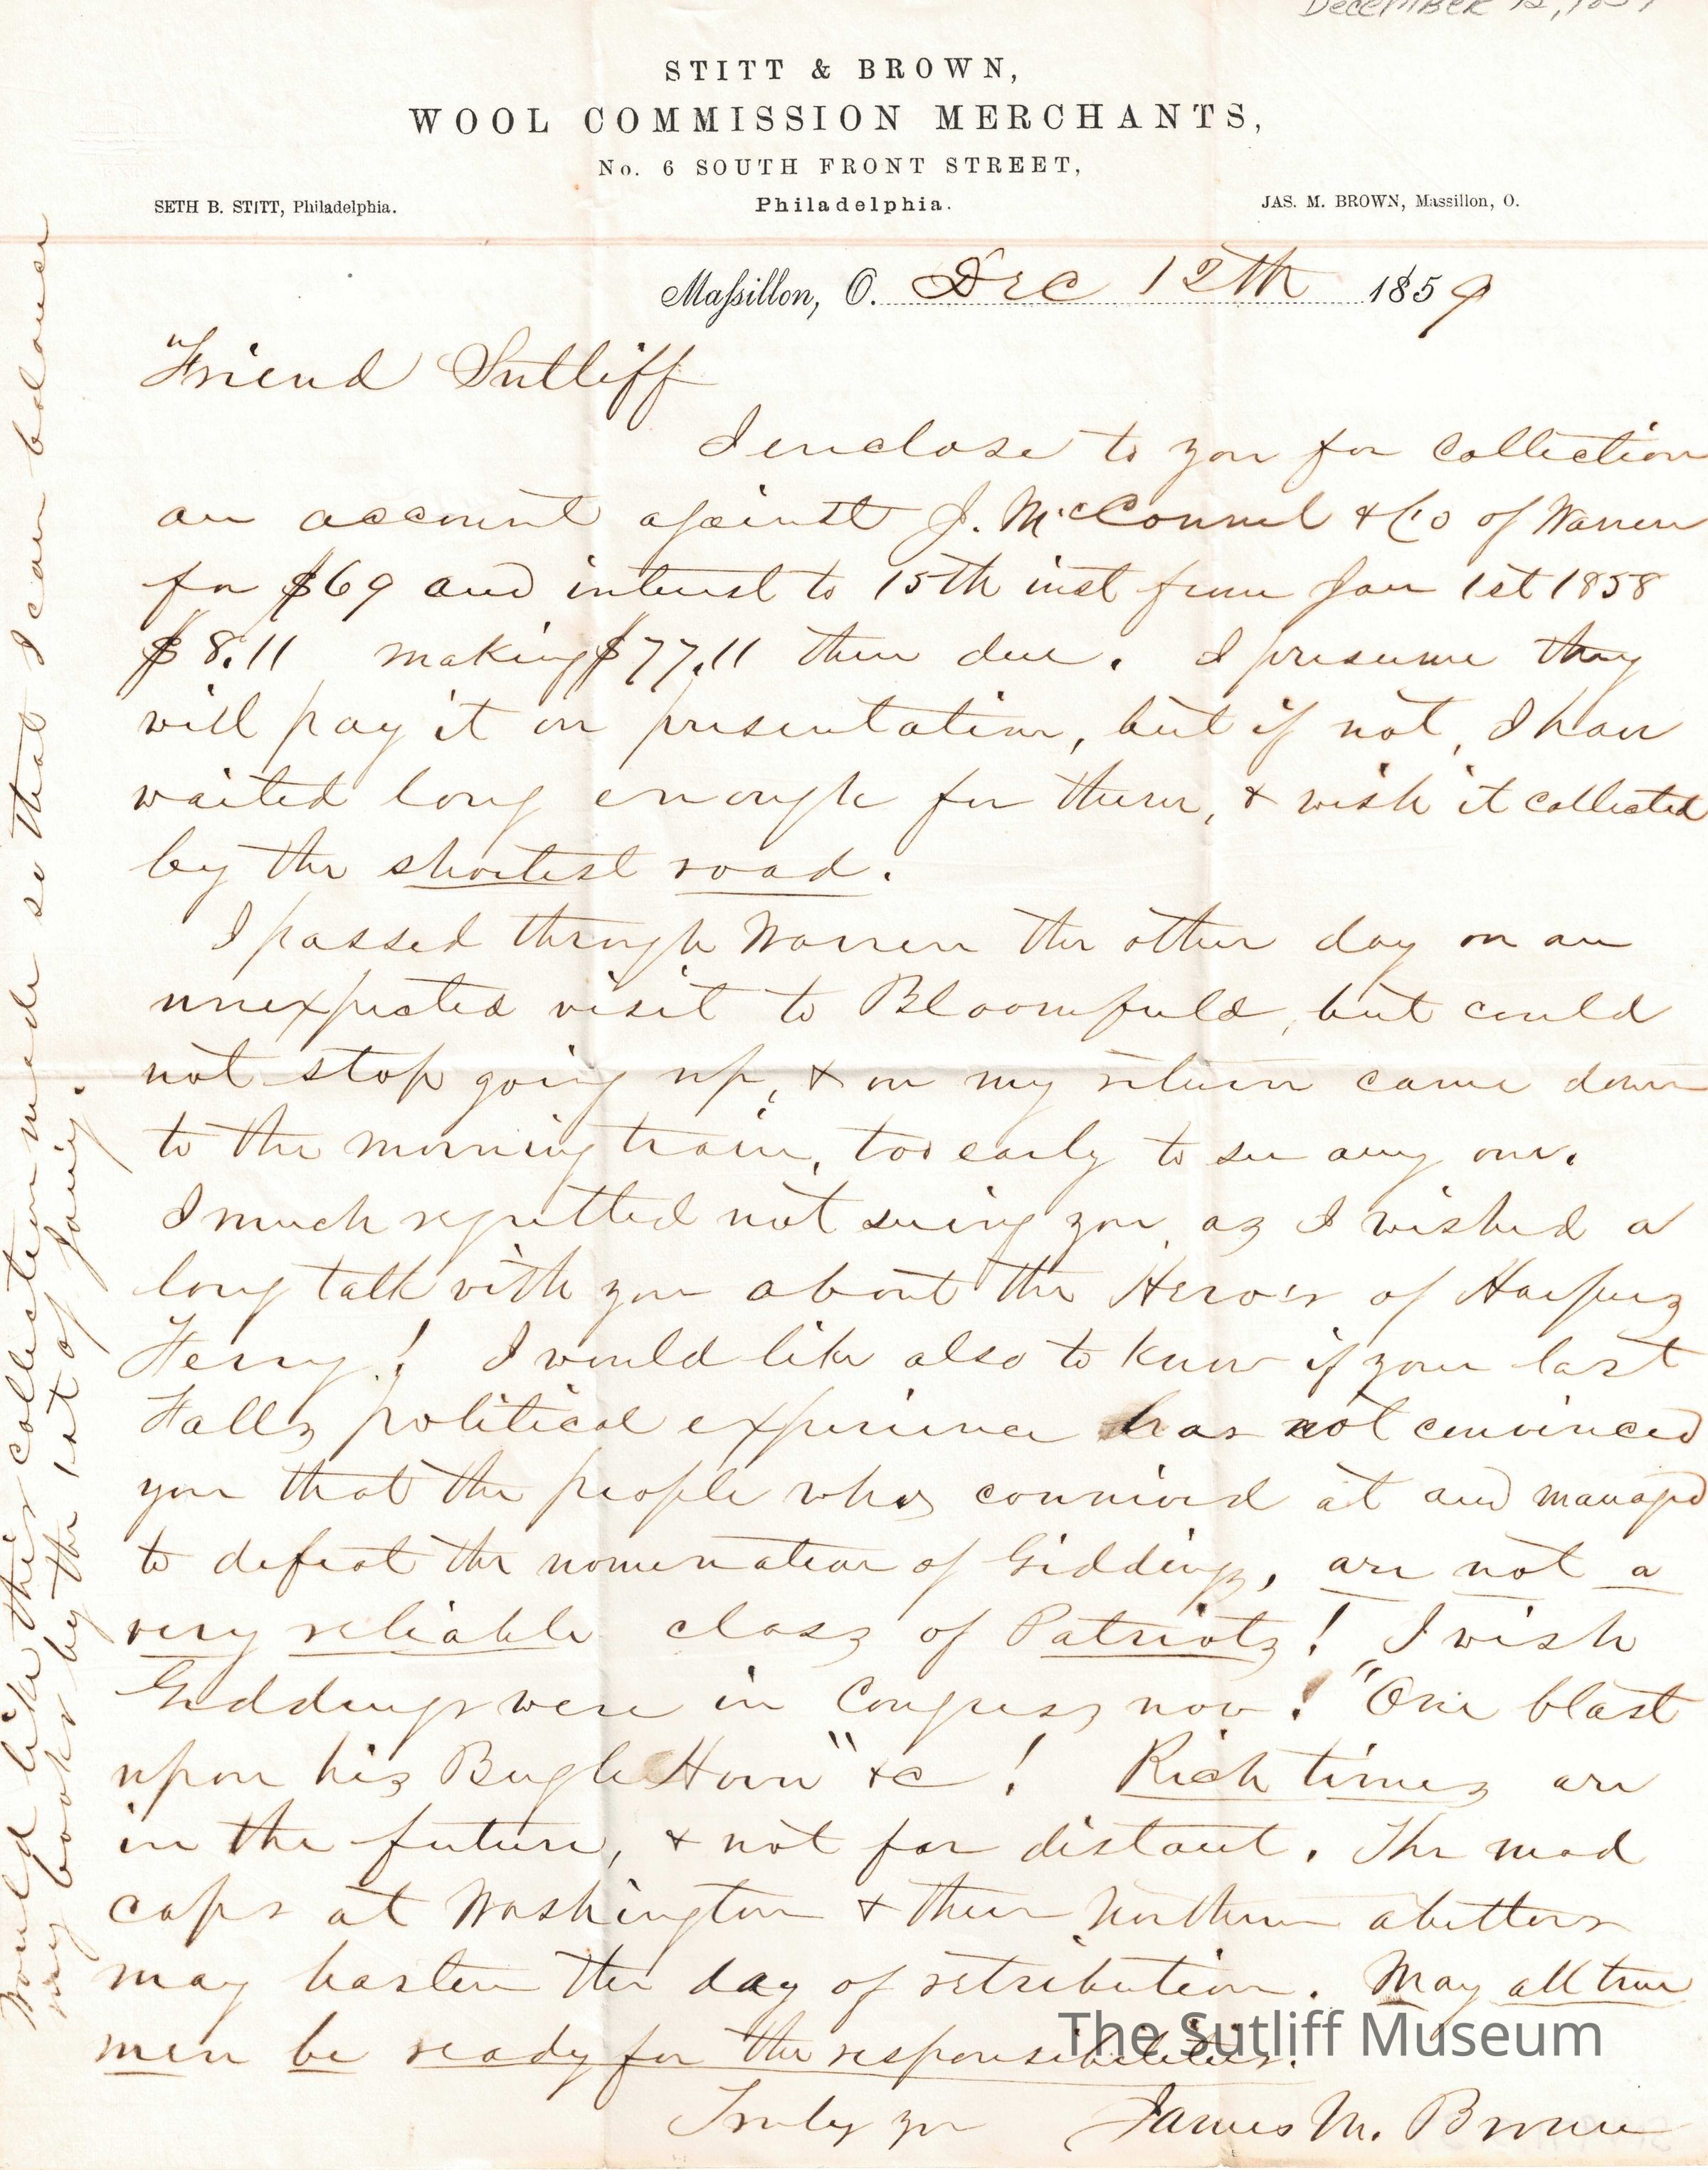 December 12, 1859
STITT & BROWN,
WOOL COMMISSION MERCHANTS,
No. 6 SOUTH FRONT STREET,
SETH B. STITT, Philadelphia.
Philadelphia.
JAS. M. BROWN, Massillon, O.
Massillon, O. Dec 12th 1859
Friend Sutliff
I enclose to you for collection
an account against J. McConnel & Co of Warren
for $69 and interest to 15th inst from Jan 1st 1858
$8.11 making $77.11 then due. I presume they
will pay it on presentation, but if not, I have
waited long enough for them, & wish it collected
by the shortest road.
I passed through Warren the other day on an
unexpected visit to Bloomfield, but could
not stop going up, & on my return came down
to the morning train, too early to see any one.
I much regretted not seeing you, as I wished a
long talk with you about the Hero's of Harpers
Ferry! I would like also to know if your last
Falls political experience has not convinced
you that the people who connived at and managed
to defeat the nomination of Giddings, are not a
very reliable class of Patriots! I wish
Giddings were in Congress now! "One blast
upon his Bugle Horn" &c! Rich times are
in the future, & not far distant. The mad
caps at Washington & their Northern abettors
may hasten the day of retribution. May all true
men be ready for the responsibilities.
Truly yr James M. Brown
Would like this collection made so that I can balance
my books by the 1st of Jany.
The Sutliff Museum